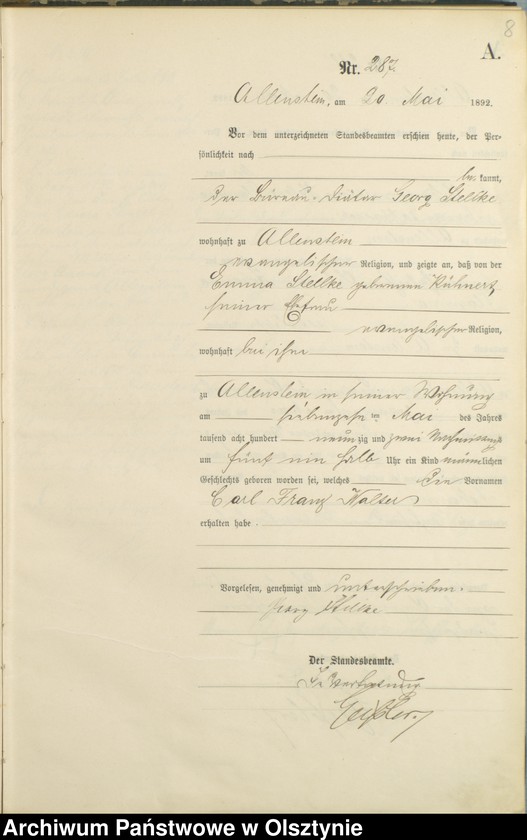 8
A.
Nr. 287.
Allenstein, am 20. Mai 1892.
Vor dem unterzeichneten Standesbeamten erschien heute, der Per-
sönlichkeit nach
be kannt,
der Büreau-Diätar Georg Stellke
wohnhaft zu Allenstein
evangelischer Religion, und zeigte an, daß von der
Emma Stellke geborenen Kühnert,
seiner Ehefrau
evangelischer Religion,
wohnhaft bei ihm
zu Allenstein in seiner Wohnung
am siebenzehn ten Mai des Jahres
tausend acht hundert neun zig und zwei Nachmittags
um fünf ein halb Uhr ein Kind männlichen
Geschlechts geboren worden sei, welches die Vornamen
Carl Franz Walter
erhalten habe.
Vorgelesen, genehmigt und unterschrieben.
Georg Stellke
Der Standesbeamte.
In Vertretung
Archiwum Państwowe w Olsztynie